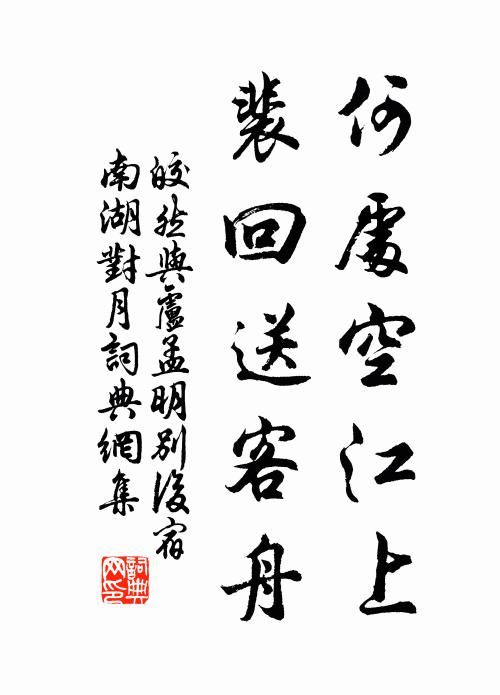 何處空江上
裴回送客舟
皎然與盧孟明別後宿
南湖對月詞典網集
詞典
网印